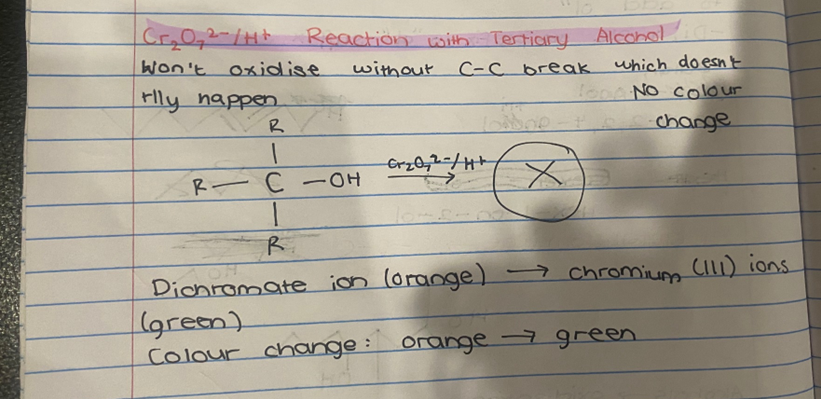 Cr₂O₇²⁻/H⁺ Reaction with Tertiary Alcohol
Won't oxidise without C-C break which doesn't
rlly happen
No colour
change
R
|
R — C — OH
Cr₂O₇²⁻/H⁺
→
X
|
R
Dichromate ion (orange) → chromium (III) ions
(green)
Colour change: orange → green